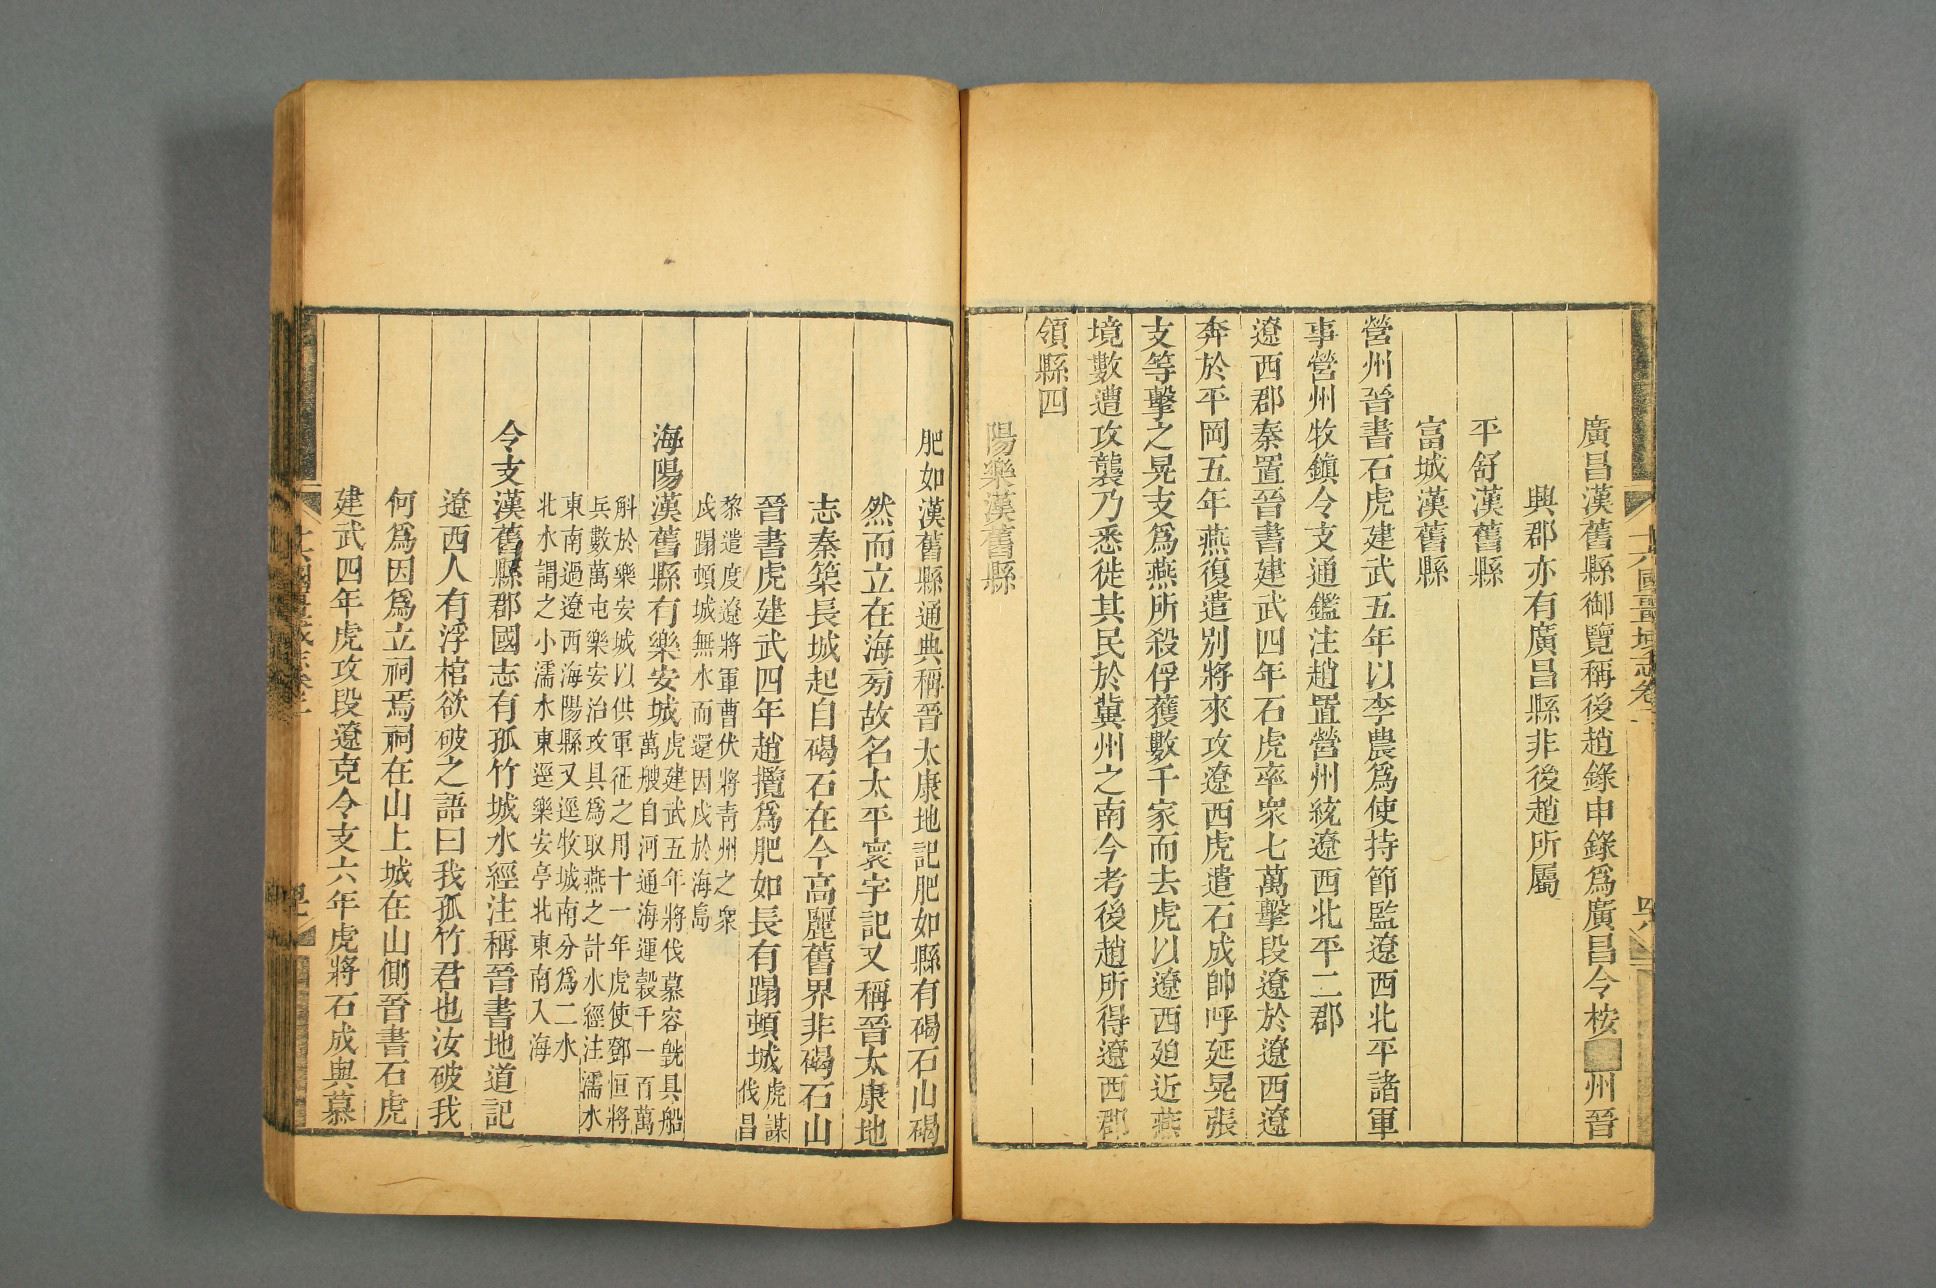 十六國疆域志卷二
廣昌漢舊縣御覽稱後趙錄申錄爲廣昌令桉州晉
興郡亦有廣昌縣非後趙所屬
平舒漢舊縣
富城漢舊縣
營州晉書石虎建武五年以李農爲使持節監遼西北平諸軍
事營州牧鎮令支通鑑注趙置營州統遼西北平二郡
遼西郡秦置晉書建武四年石虎率衆七萬擊段遼於遼西遼
奔於平岡五年燕復遣別將來攻遼西虎遣石成帥呼延晃張
支等擊之晃支爲燕所殺俘獲數千家而去虎以遼西廹近燕
境數遭攻襲乃悉徙其民於冀州之南今考後趙所得遼西郡
領縣四
陽樂漢舊縣
肥如漢舊縣通典稱晉太康地記肥如縣有碣石山碣
然而立在海旁故名太平寰宇記又稱晉太康地
志秦築長城起自碣石在今高麗舊界非碣石山
晉書虎建武四年趙攬爲肥如長有蹋頓城虎謀伐昌
黎遣度遼將軍曹伏將青州之衆
戍蹋頓城無水而還因戍於海島
海陽漢舊縣有樂安城虎建武五年將伐慕容皝具船
萬艘自河通海運穀千一百萬
斛於樂安城以供軍征之用十一年虎使鄧恒將
兵數萬屯樂安治攻具爲取燕之計水經注濡水
東南過遼西海陽縣又逕牧城南分爲二水
北水謂之小濡水東逕樂安亭北東南入海
令支漢舊縣郡國志有孤竹城水經注稱晉書地道記
遼西人有浮棺欲破之語曰我孤竹君也汝破我
何爲因爲立祠焉祠在山上城在山側晉書石虎
建武四年虎攻段遼克令支六年虎將石成與慕